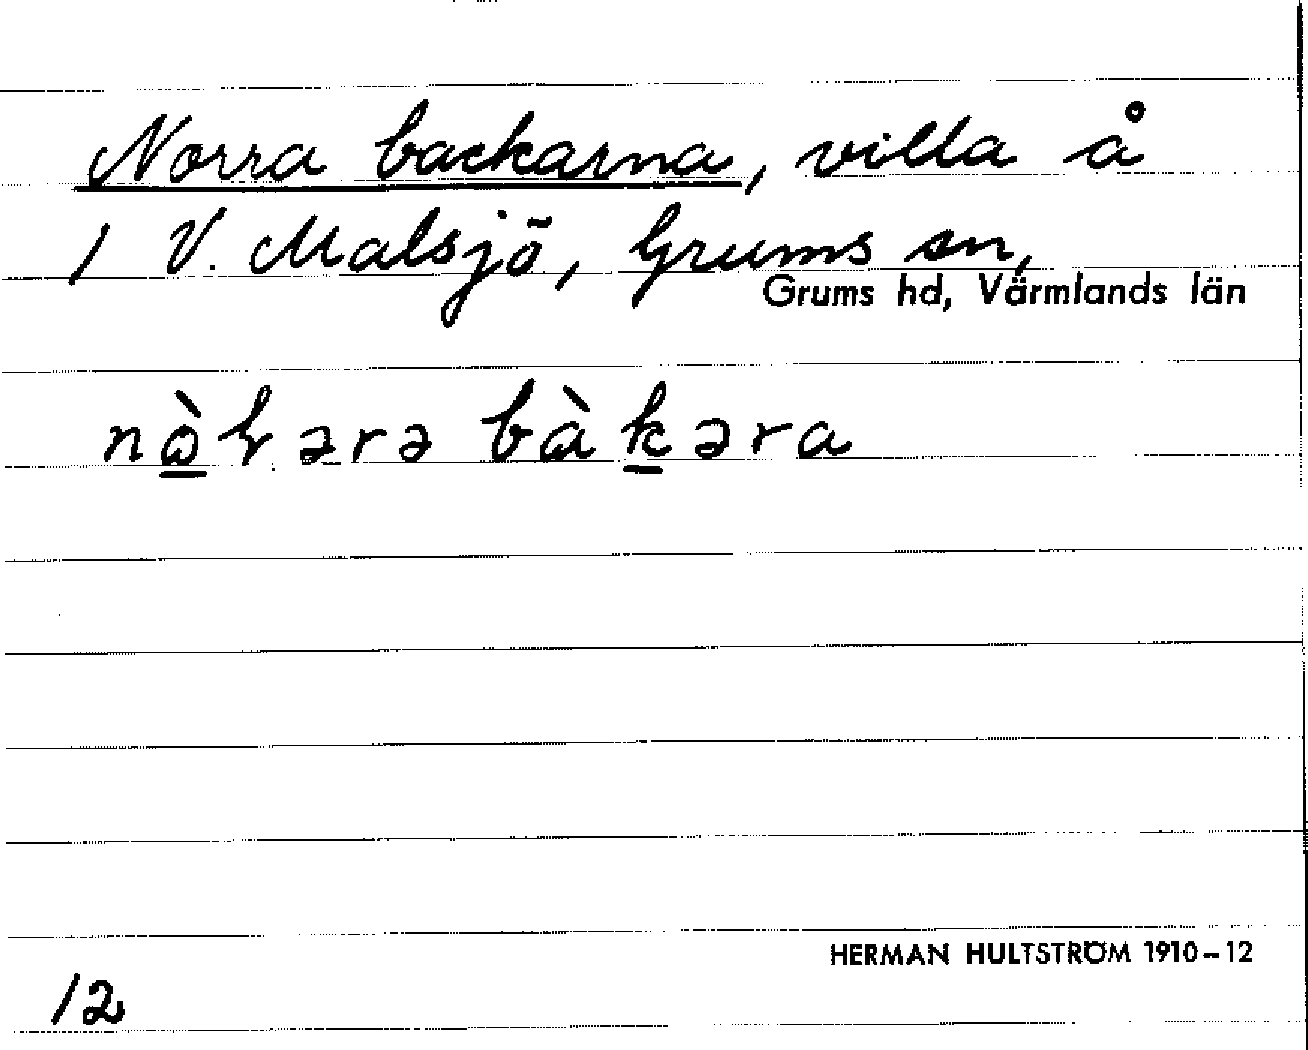 Norra backarna, villa å
1 V. Malsjö, Grums sn,
Grums hd, Värmlands län
bàkəra
HERMAN HULTSTRÖM 1910–12
12